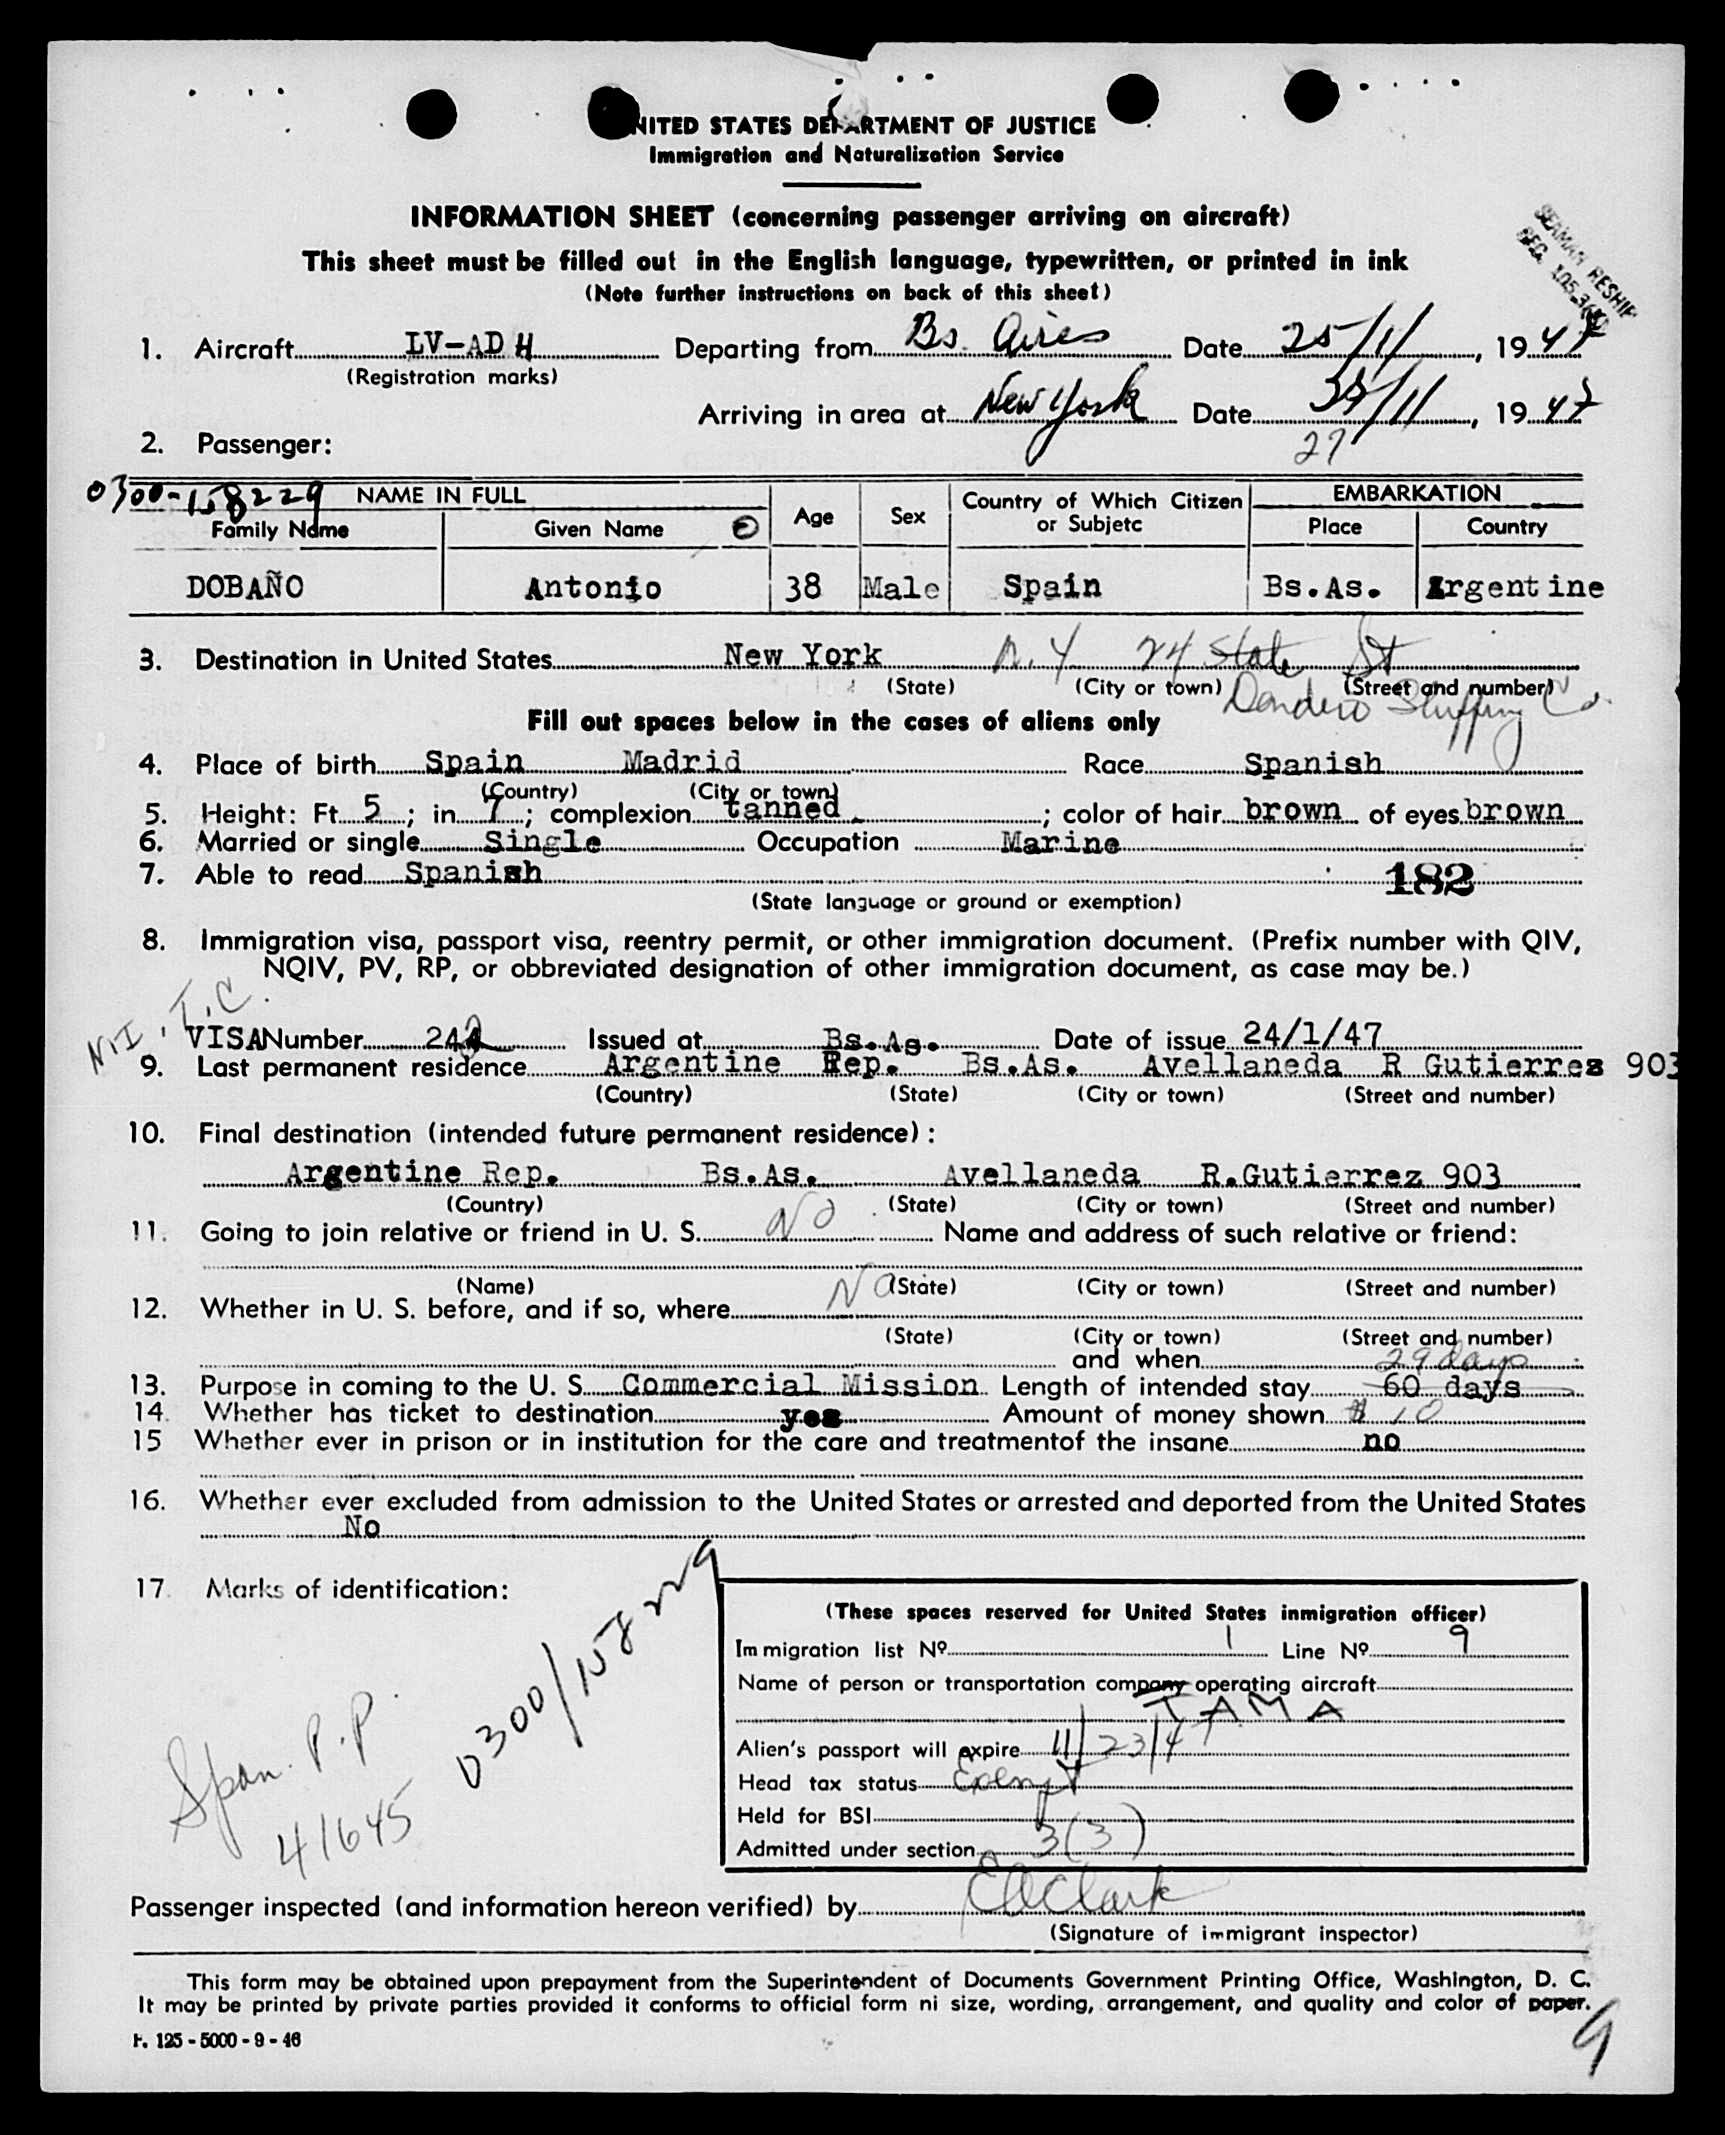 UNITED STATES DEPARTMENT OF JUSTICE
Immigration and Naturalization Service
INFORMATION SHEET (concerning passenger arriving on aircraft)
This sheet must be filled out in the English language, typewritten, or printed in ink
(Note further instructions on back of this sheet)
SEAMAN RESHIP
SEC.
1. Aircraft LV-ADH Departing from Bs. Aires Date 25/11/, 1947
(Registration marks)
Arriving in area at New York Date /11/, 1947
27
2. Passenger:
0300-158229 NAME IN FULL Age Sex Country of Which Citizen or Subjetc EMBARKATION
Family Name Given Name Place Country
DOBAÑO Antonio 38 Male Spain Bs.As. Argentine
3. Destination in United States New York N.Y. 24 State St
(State) (City or town) (Street and number)
Dondero Shipping Co.
Fill out spaces below in the cases of aliens only
4. Place of birth Spain Madrid Race Spanish
(Country) (City or town)
5. Height: Ft. 5; in. 7; complexion tanned; color of hair brown of eyes brown
6. Married or single Single Occupation Marine
7. Able to read Spanish 182
(State language or ground or exemption)
8. Immigration visa, passport visa, reentry permit, or other immigration document. (Prefix number with QIV,
NQIV, PV, RP, or obbreviated designation of other immigration document, as case may be.)
N.I.T.C.
VISA Number 242 Issued at Bs.As. Date of issue 24/1/47
9. Last permanent residence Argentine Rep. Bs.As. Avellaneda R Gutierres 903
(Country) (State) (City or town) (Street and number)
10. Final destination (intended future permanent residence):
Argentine Rep. Bs.As. Avellaneda R.Gutierrez 903
(Country) (State) (City or town) (Street and number)
11. Going to join relative or friend in U. S. NO Name and address of such relative or friend:
(Name) (State) (City or town) (Street and number)
12. Whether in U. S. before, and if so, where NO
(State) (City or town) (Street and number)
and when
29 days
13. Purpose in coming to the U. S. Commercial Mission Length of intended stay 60 days
14. Whether has ticket to destination yes Amount of money shown $ 10
15 Whether ever in prison or in institution for the care and treatmentof the insane no
16. Whether ever excluded from admission to the United States or arrested and deported from the United States
No
17. Marks of identification:
0300/158229
Span. P.P.
41645
(These spaces reserved for United States inmigration officer)
Immigration list Nº 1 Line Nº 9
Name of person or transportation company operating aircraft
TAMA
Alien's passport will expire 11/23/47
Head tax status Exempt
Held for BSI
Admitted under section 3(3)
Passenger inspected (and information hereon verified) by Clark
(Signature of immigrant inspector)
This form may be obtained upon prepayment from the Superintendent of Documents Government Printing Office, Washington, D. C.
It may be printed by private parties provided it conforms to official form ni size, wording, arrangement, and quality and color of paper.
F. 125 - 5000 - 9 - 46
9